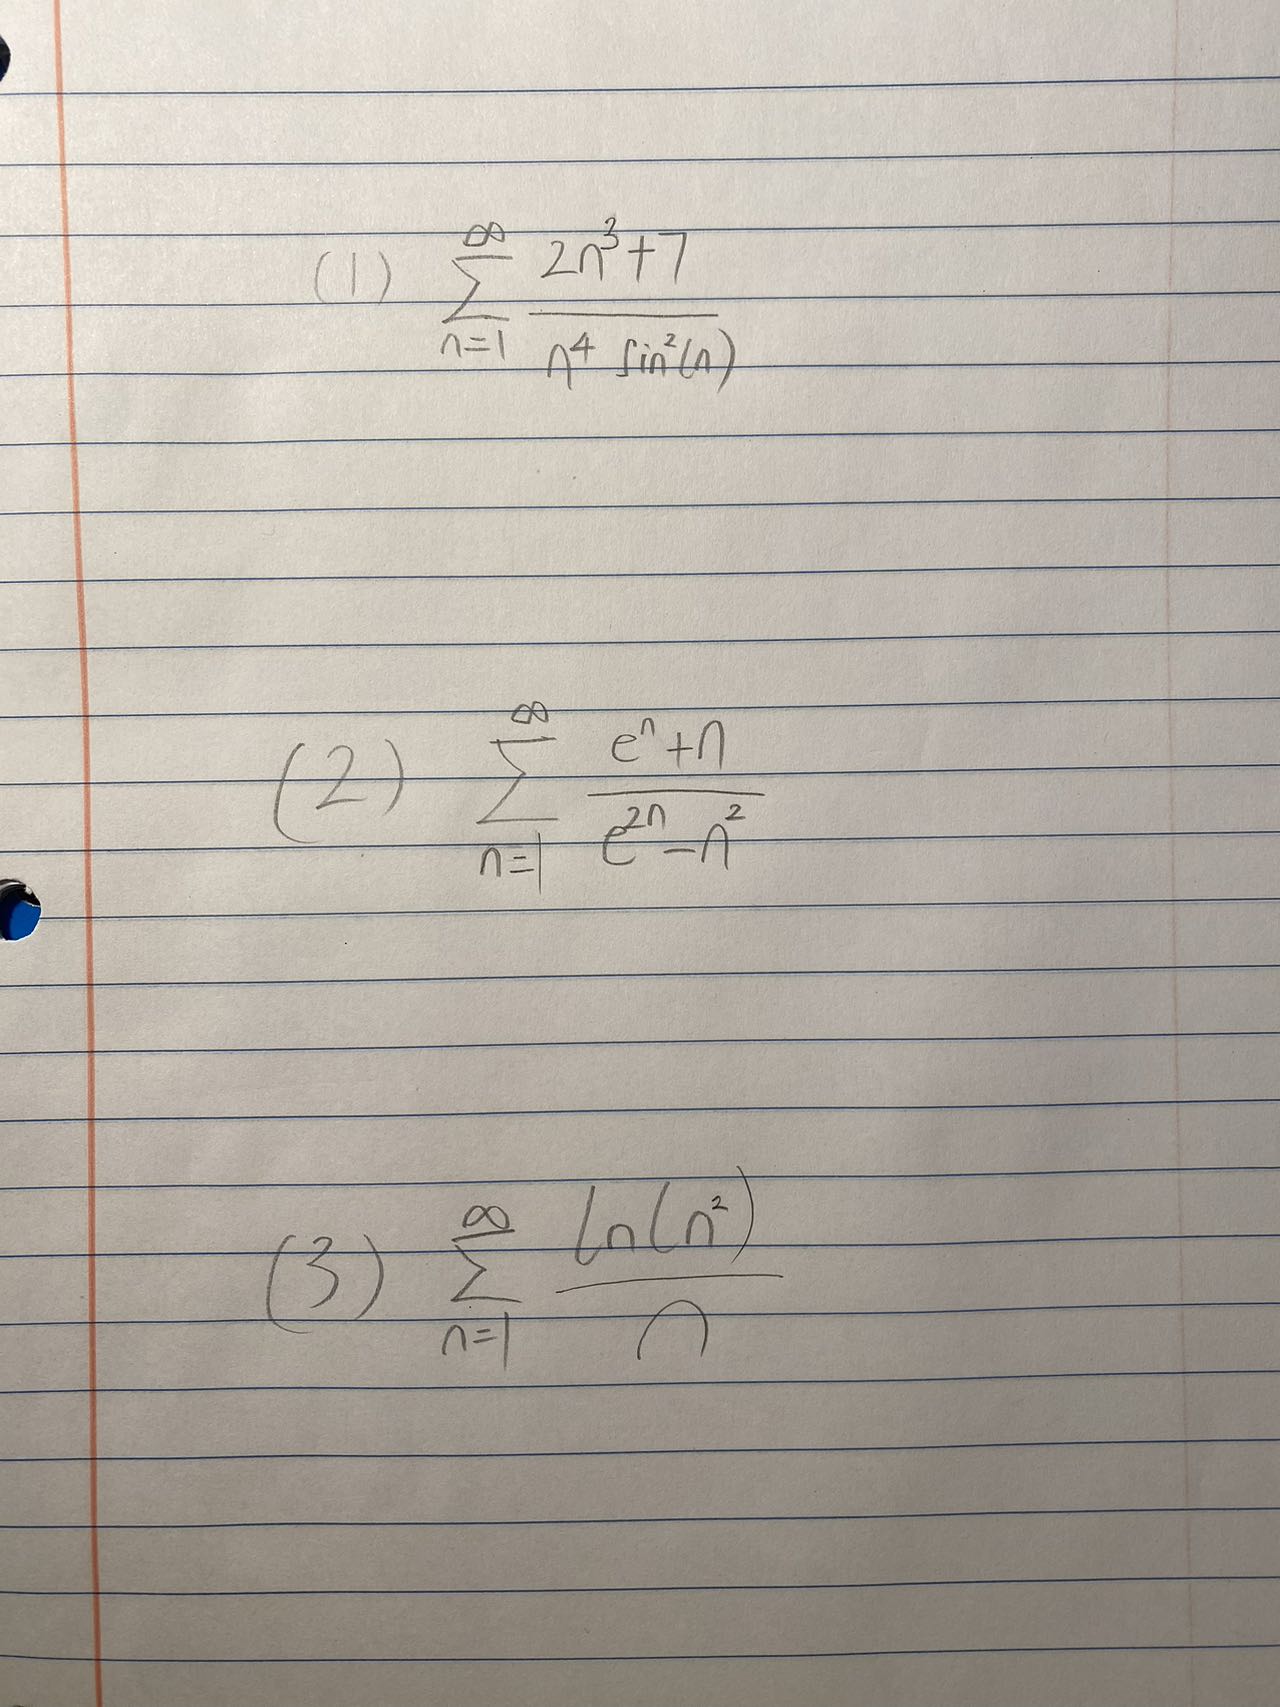 (1) $\sum_{n=1}^{\infty} \frac{2n^3+7}{n^4 \sin^2(n)}$
(2) $\sum_{n=1}^{\infty} \frac{e^n+n}{e^{2n}-n^2}$
(3) $\sum_{n=1}^{\infty} \frac{\ln(n^2)}{n}$